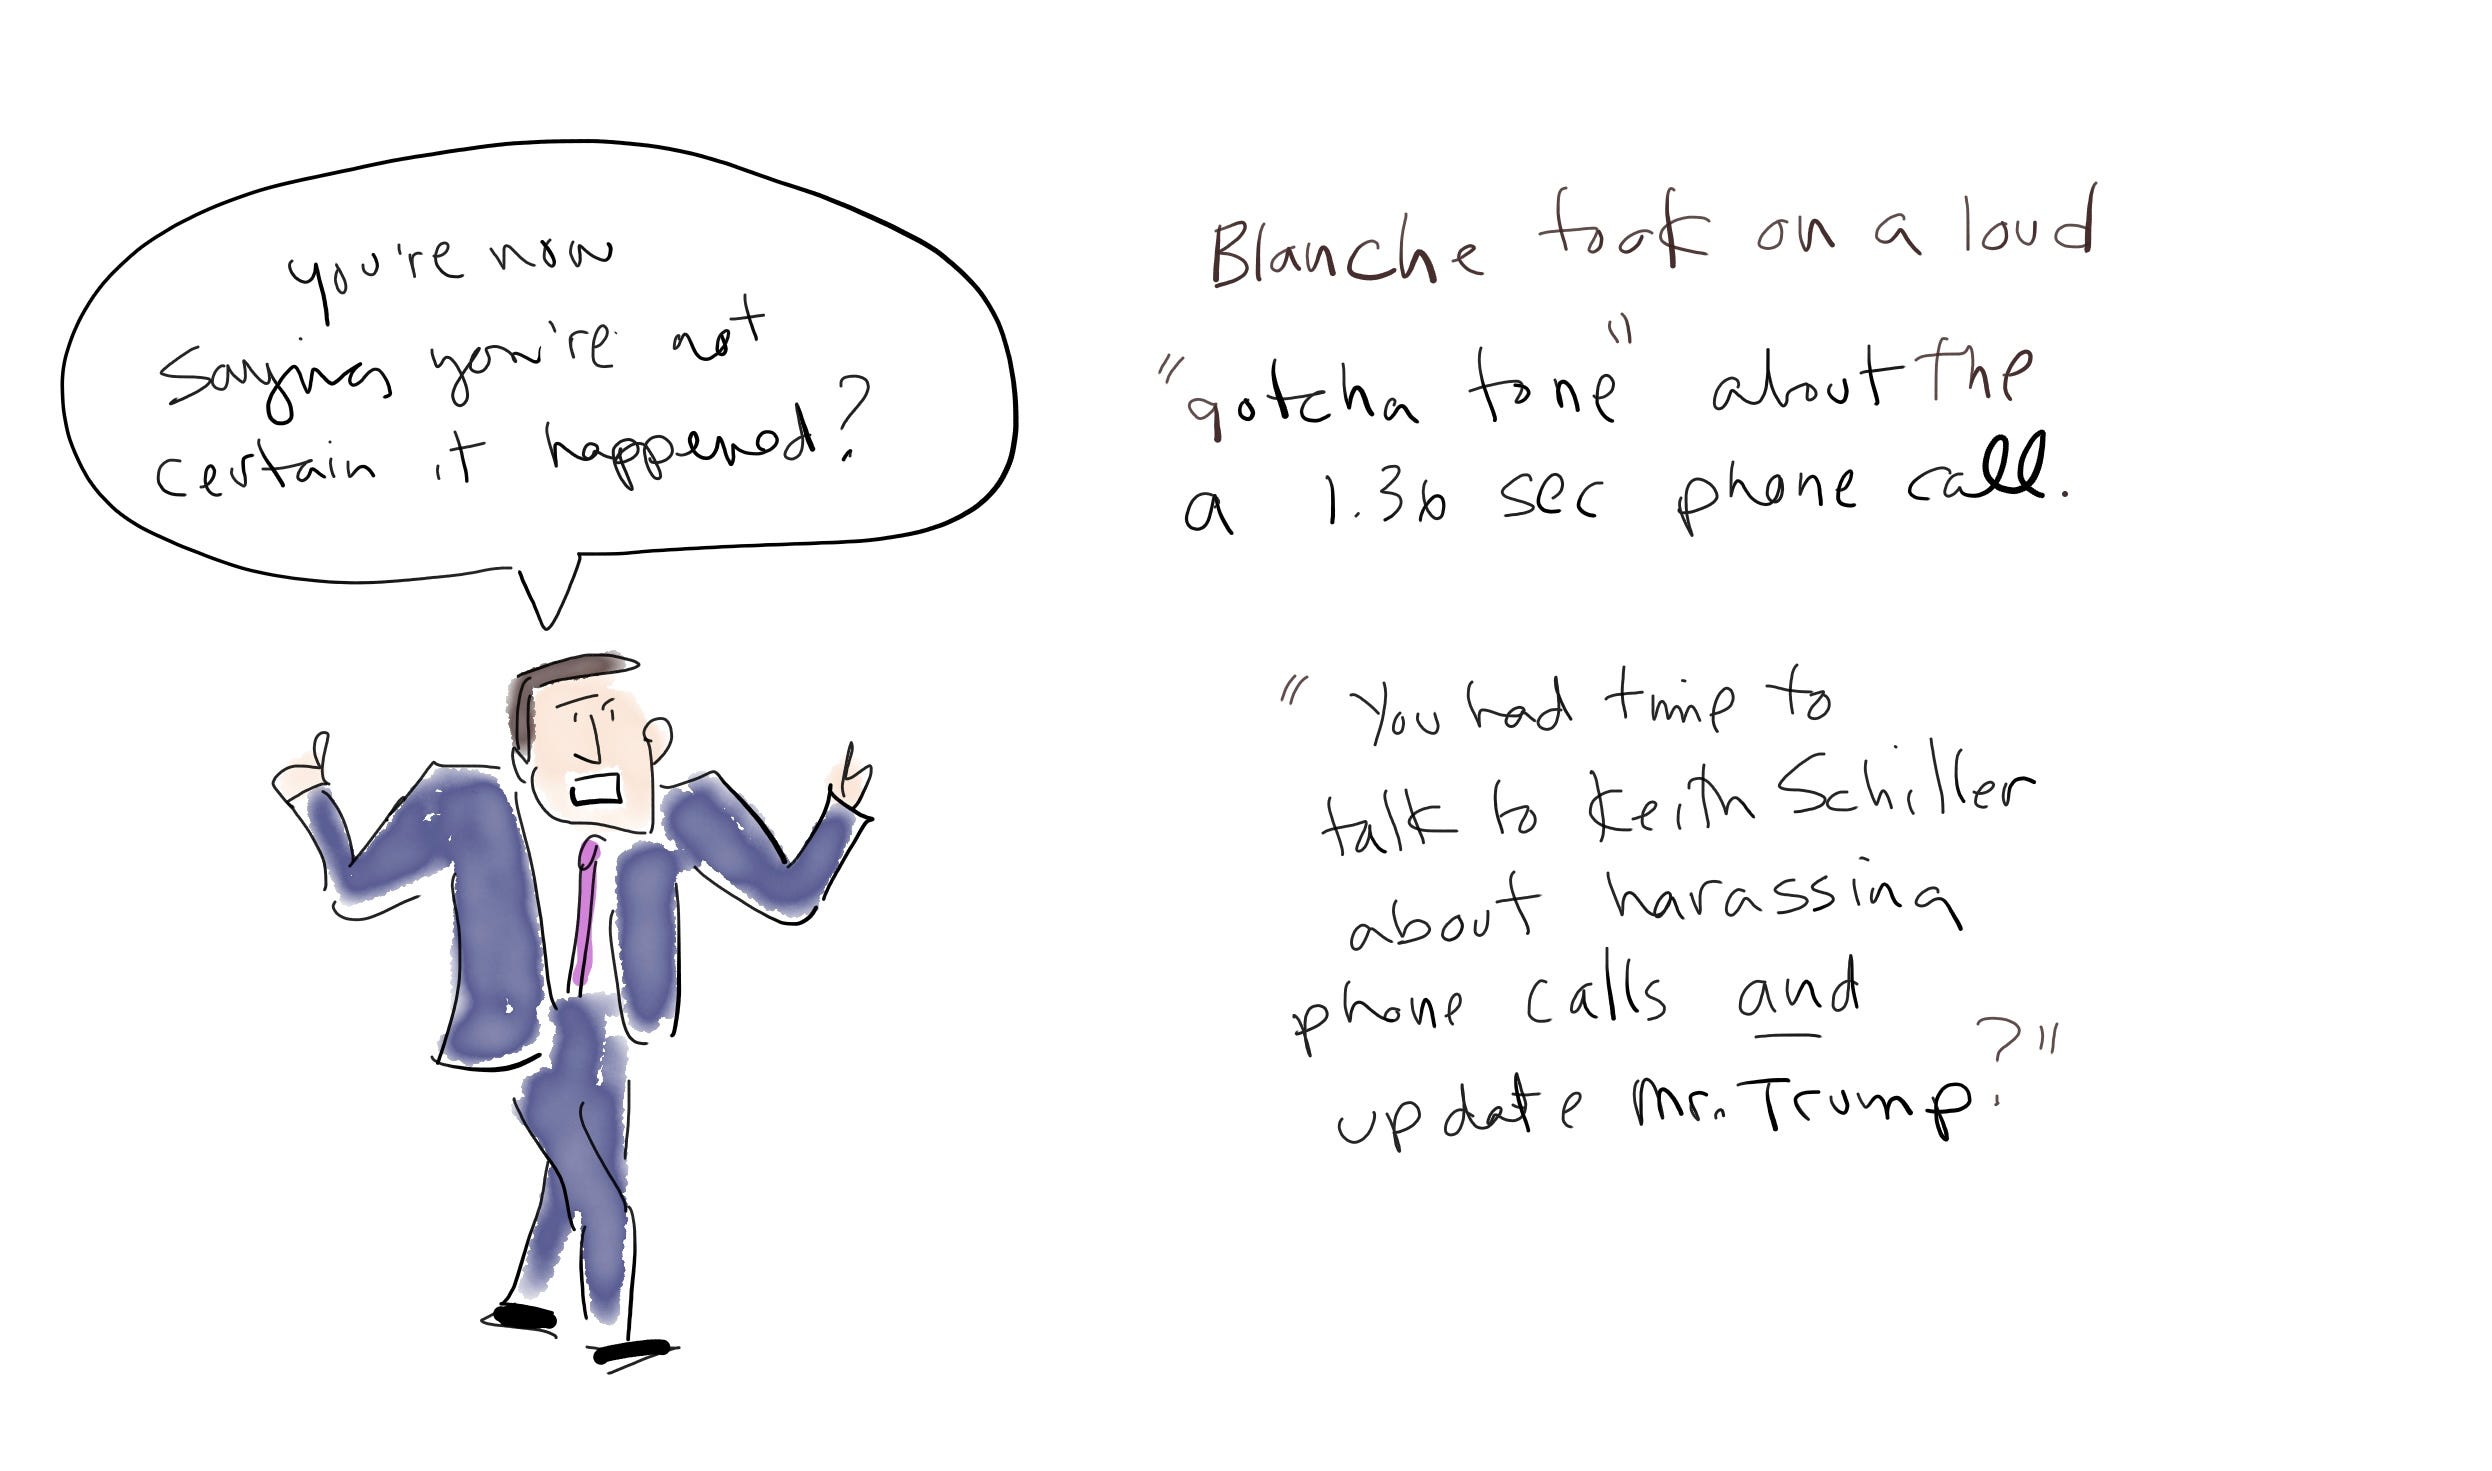 you're now
saying you're not
certain it happened?
Blanche took on a loud
"gotcha tone" about the
a 1.36 sec phone call.
"You had time to
talk to Keith Schiller
about harassing
phone calls and
update Mr. Trump?"